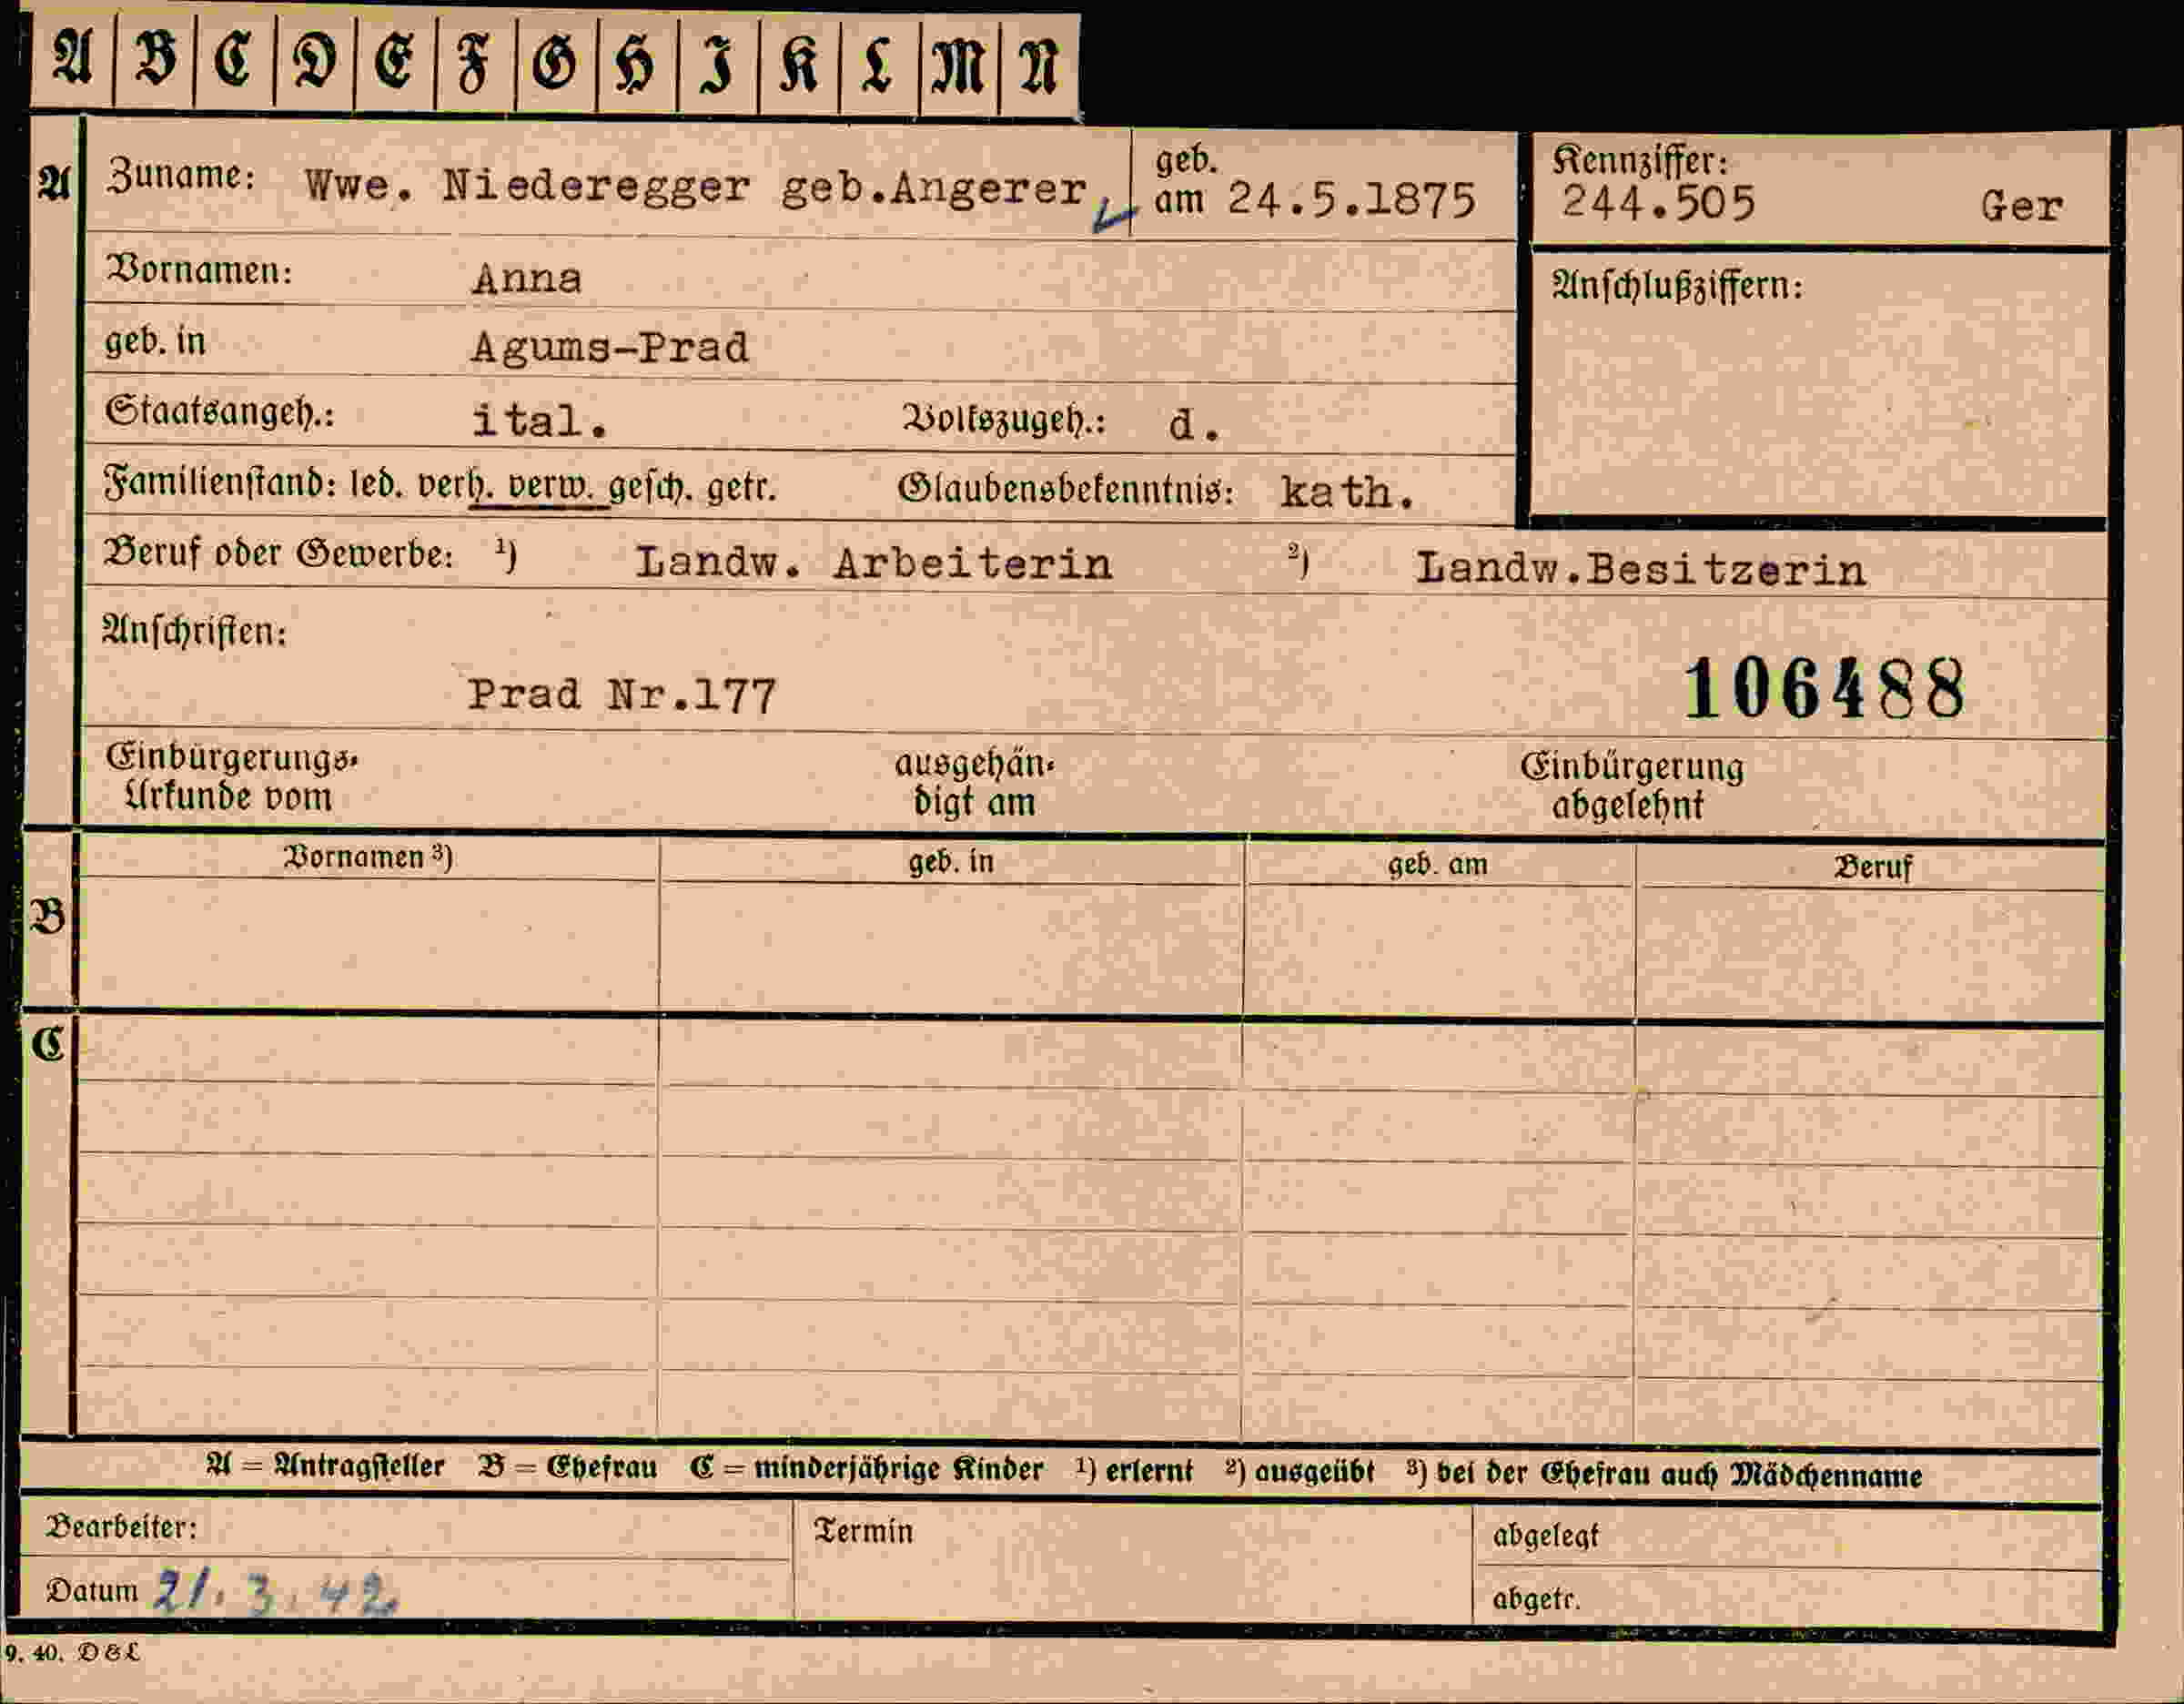 A B C D E F G H I K L M N
A Zuname: Wwe. Niederegger geb.Angerer, geb. am 24.5.1875 Kennziffer: 244.505 Ger
Vornamen: Anna Anschlußziffern:
geb. in Agums-Prad
Staatsangeh.: ital. Volkszugeh.: d.
Familienstand: led. verh. verw. gesch. getr. Glaubensbekenntnis: kath.
Beruf oder Gewerbe: ¹) Landw. Arbeiterin ²) Landw.Besitzerin
Anschriften:
Prad Nr.177 106488
Einbürgerungs- ausgehän- Einbürgerung
Urkunde vom digt am abgelehnt
Vornamen ³) geb. in geb. am Beruf
B
C
A = Antragsteller B = Ehefrau C = minderjährige Kinder ¹) erlernt ²) ausgeübt ³) bei der Ehefrau auch Mädchenname
Bearbeiter: Termin abgelegt
Datum 21.3.42 abgetr.
9. 40. D & L